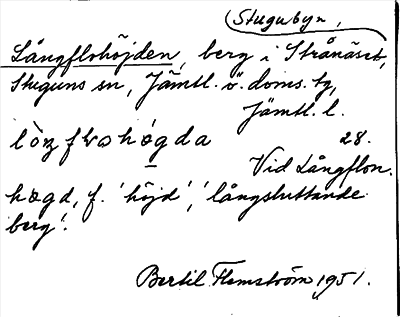 Stugubyn,
Långflohöjden, berg i Strånäset,
Stuguns sn, Jämtl. ö. doms. tg,
Jämtl. l.
28.
Vid Långflon.
høgd, f. 'höjd', 'långsluttande
berg'.
Bertil Flemström 1951.